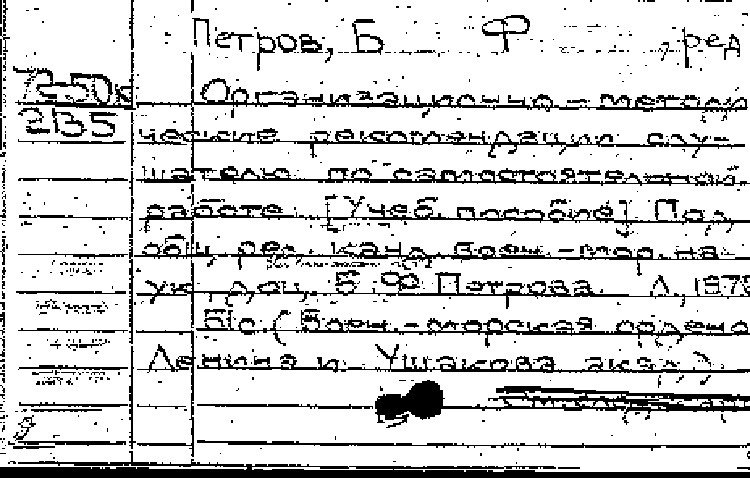 Петров, Б Ф , ред
72-50к Организационно-методи
2135 ческие рекомендации слу-
шателю по самостоятельной
работе. [Учеб. пособие] Под
общ. ред. канд. воен.-мор. на-
ук, доц. Б. Ф. Петрова. Л., 1978
51с. (Воен.-морская ордена
Ленина и Ушакова акад.)